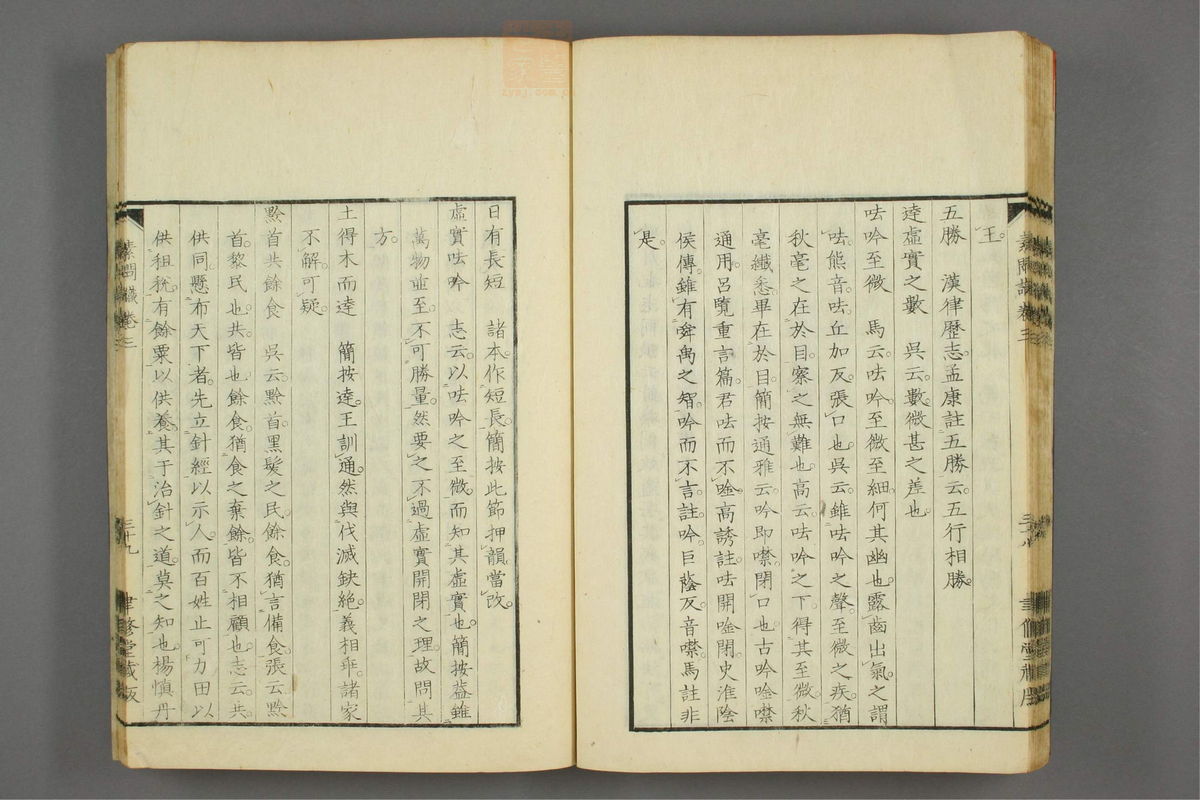 王。
五勝　漢律歷志。孟康註五勝云。五行相勝。
達虛實之數　吳云。數。微甚之差也。
呿吟至微　馬云。呿吟。至微至細。何其幽也。露齒出氣。之謂
呿。熊音。呿。丘加反。張口也。吳云。雖呿吟之聲。至微之疾。猶
秋毫之在於目。察之無難也。高云。呿吟之下。得其至微。秋
毫纖悉畢在於目。簡按通雅云。吟即噤。閉口也。古吟唫噤
通用。呂覽重言篇。君呿而不唫。高誘註。呿開唫閉。史淮陰
侯傳。雖有舜禹之智。吟而不言。註。吟。巨蔭反。音噤。馬註非
是。
日有長短　諸本作短長。簡按此節押韻當改。
虛實呿吟　志云。以呿吟之至微。而知其虛實也。簡按。蓋雖
萬物並至。不可勝量。然要之。不過虛實開閉之理。故問其
方。
土得木而達　簡按。達。王訓通。然與伐滅缺絕。義相乖。諸家
不解。可疑。
黔首共餘食　吳云。黔首。黑髮之民。餘食。猶言備食。張云。黔
首。黎民也。共。皆也。餘食。猶食之棄餘。皆不相顧也。志云。共。
供同。懸布天下者。先立針經以示人。而百姓止可力田以
供租稅。有餘粟以供養。其于治針之道。莫之知也。楊慎丹
素問識 卷三
三十九
聿修堂藏板